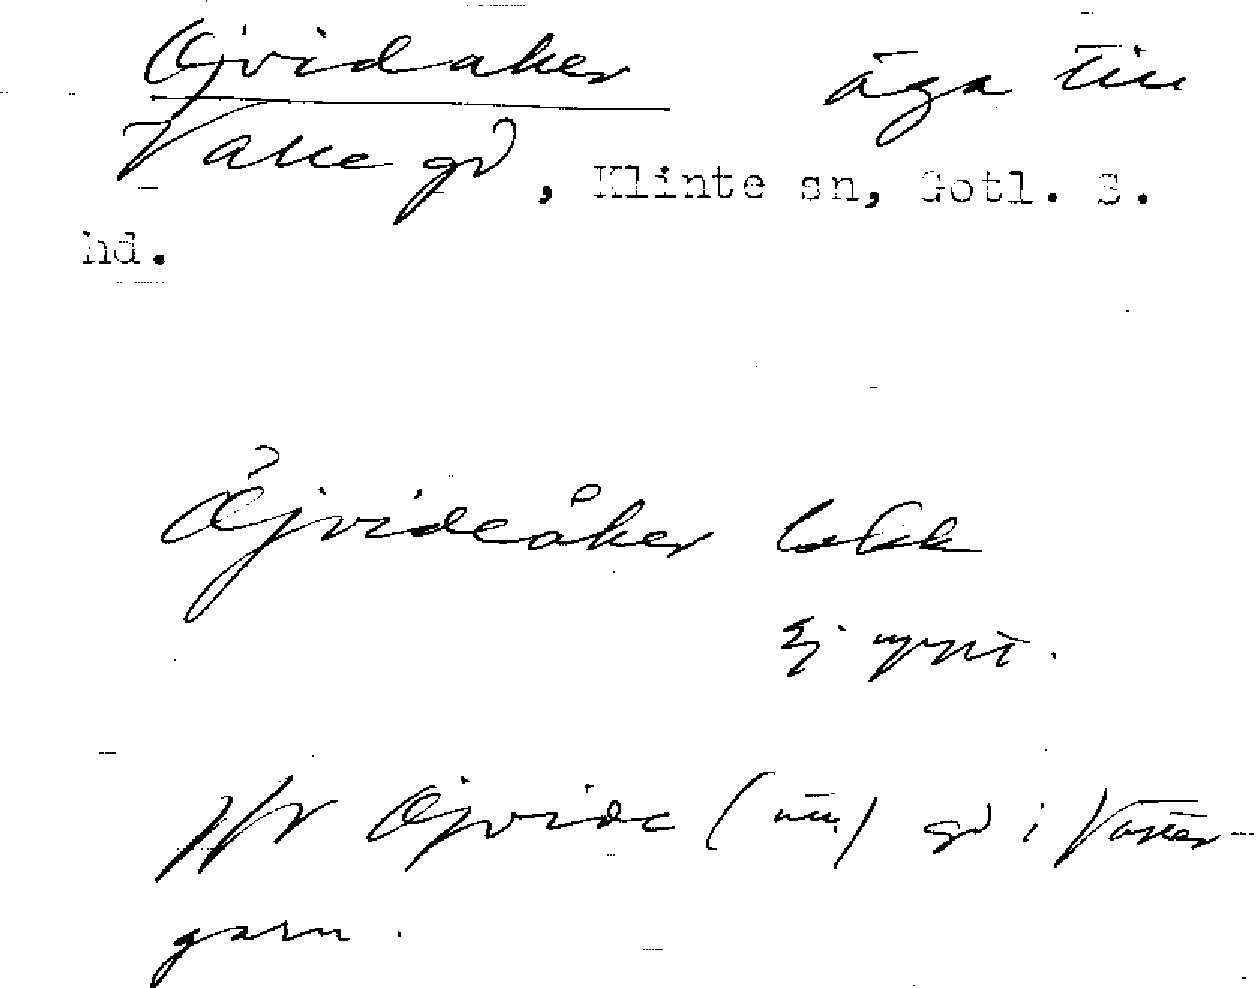 Öjvidaker äga till
Valle gd, Klinte sn, Gotl. S.
hd.
Öjvideåker
ej synt.
Jfr Öjvide (nu) gd i Väster-
garn.